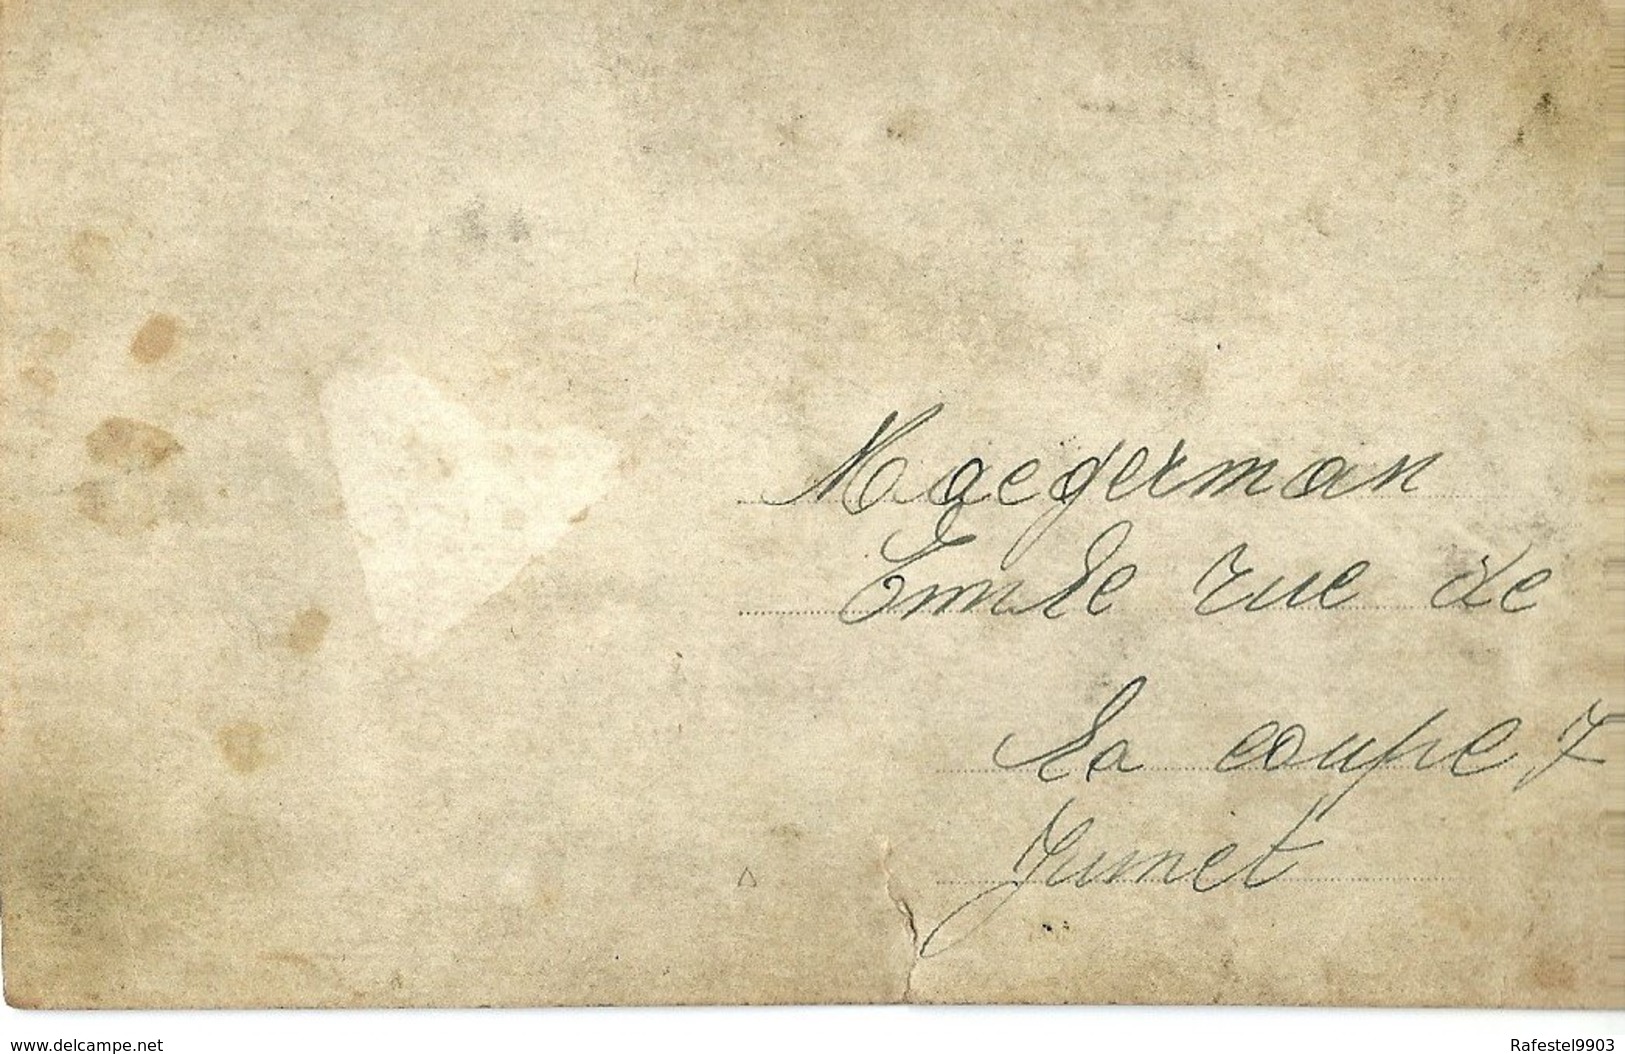 Maegerman
Emile rue de
la coupe 7
Jumet
www.delcampe.net
Rafestel9903